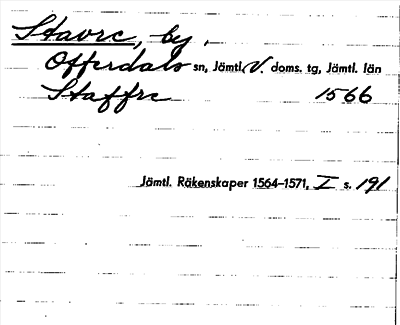 Stavre, by,
Offerdals sn, Jämtl. V. doms. tg, Jämtl. län
Staffre 1566
Jämtl. Räkenskaper 1564–1571, I s. 191